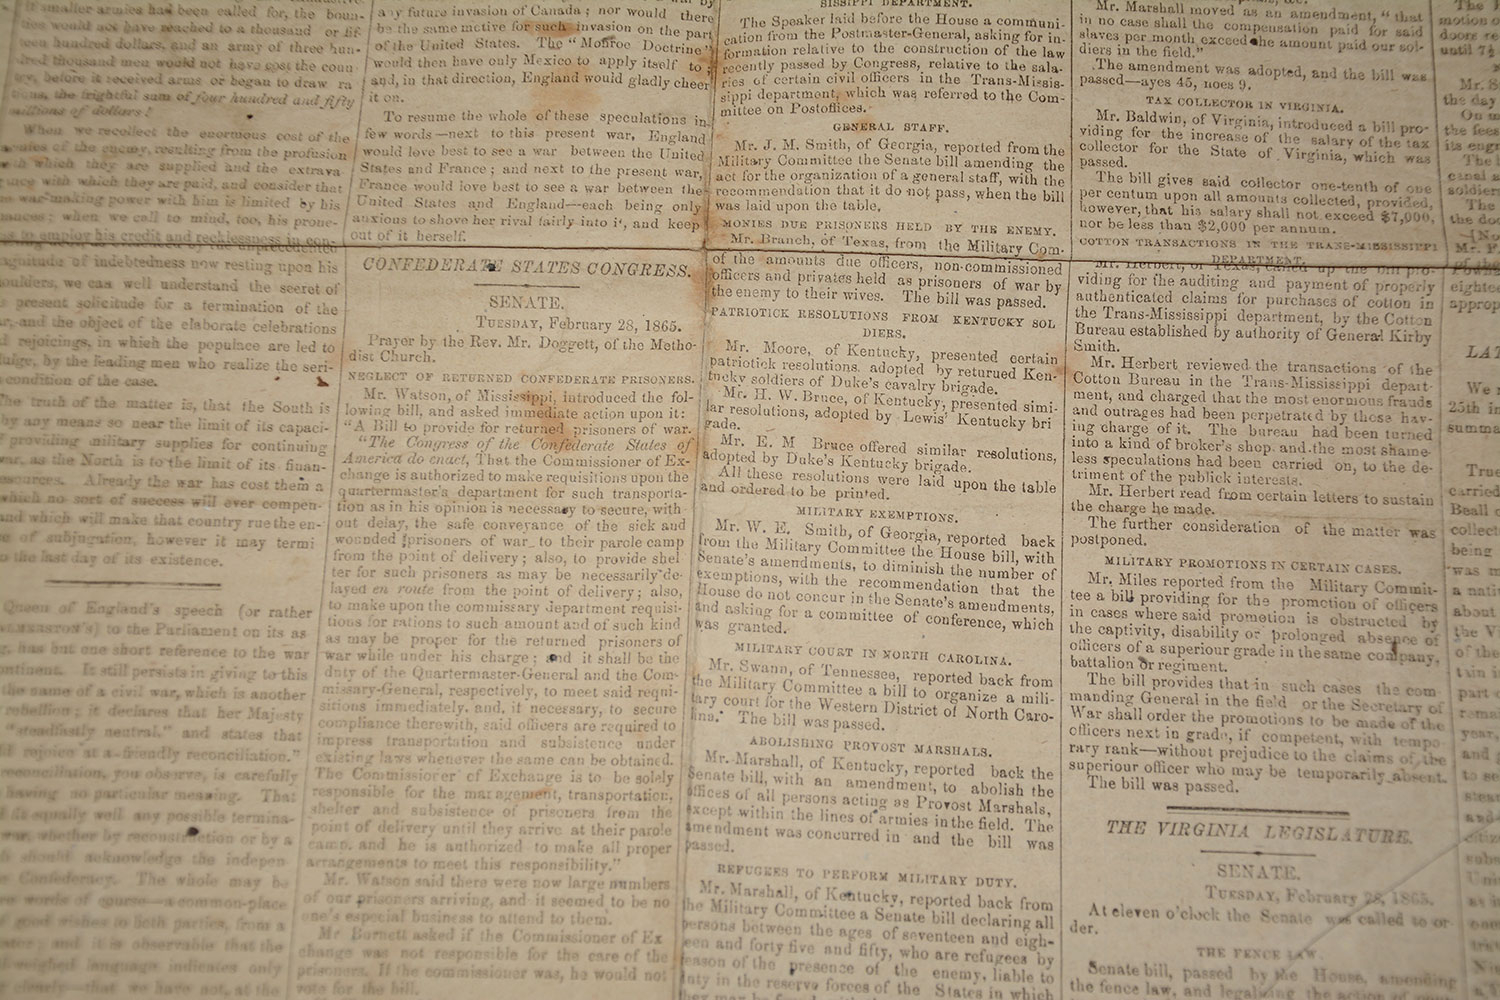 it smaller armies has been called for, the boun-
ties would not have reached to a thousand or fif
teen hundred dollars, and an army of three hun-
dred thousand men would not have cost the coun
try, before it received arms or began to draw ra
tions, the frightful sum of four hundred and fifty
millions of dollars!
When we recollect the enormous cost of the
armies of the enemy, resulting from the profusion
with which they are supplied and the extrava
gance with which they are paid, and consider that
war-making power with him is limited by his
finances; when we call to mind, too, his prone-
ness to employ his credit and recklessness in con-
magnitude of indebtedness now resting upon his
shoulders, we can well understand the secret of
his present solicitude for a termination of the
war, and the object of the elaborate celebrations
and rejoicings, in which the populace are led to
indulge, by the leading men who realize the seri-
condition of the case.
The truth of the matter is, that the South is
by any means so near the limit of its capaci-
of providing military supplies for continuing
war, as the North is to the limit of its finan-
resources. Already the war has cost them a
which no sort of success will ever compen-
and which will make that country rue the en-
of subjugation, however it may termi
to the last day of its existence.
Queen of England's speech (or rather
to the Parliament on its as
has but one short reference to the war
continent. It still persists in giving to this
the name of a civil war, which is another
rebellion; it declares that her Majesty
"steadfastly neutral," and states that
rejoice at a friendly reconciliation."
reconciliation, you observe, is carefully
having no particular meaning. That
equally well any possible termina-
war, whether by reconstruction or by a
should acknowledge the indepen
Confederacy. The whole may be
words of course—a common-place
good wishes to both parties, from a
and it is observable that the
weighed language indicates only
clearly—that we have not, at the
any future invasion of Canada; nor would there
be the same motive for such invasion on the part
of the United States. The "Monroe Doctrine"
would then have only Mexico to apply itself to;
and, in that direction, England would gladly cheer
it on.
To resume the whole of these speculations in
few words—next to this present war, England
would love best to see a war between the United
States and France; and next to the present war,
France would love best to see a war between the
United States and England—each being only
anxious to shove her rival fairly into it, and keep
out of it herself.
CONFEDERATE STATES CONGRESS.
SENATE.
TUESDAY, February 28, 1865.
Prayer by the Rev. Mr. Doggett, of the Metho-
dist Church.
NEGLECT OF RETURNED CONFEDERATE PRISONERS.
Mr. Watson, of Mississippi, introduced the fol-
lowing bill, and asked immediate action upon it:
"A Bill to provide for returned prisoners of war.
"The Congress of the Confederate States of
America do enact, That the Commissioner of Ex-
change is authorized to make requisitions upon the
quartermaster's department for such transporta-
tion as in his opinion is necessary to secure, with-
out delay, the safe conveyance of the sick and
wounded prisoners of war to their parole camp
from the point of delivery; also, to provide shel
ter for such prisoners as may be necessarily de-
layed en route from the point of delivery; also,
to make upon the commissary department requisi-
tions for rations to such amount and of such kind
as may be proper for the returned prisoners of
war while under his charge; and it shall be the
duty of the Quartermaster-General and the Com-
missary-General, respectively, to meet said requi-
sitions immediately, and, if necessary, to secure
compliance therewith, said officers are required to
impress transportation and subsistence under
existing laws whenever the same can be obtained.
The Commissioner of Exchange is to be solely
responsible for the management, transportation,
shelter and subsistence of prisoners from the
point of delivery until they arrive at their parole
camp, and he is authorized to make all proper
arrangements to meet this responsibility."
Mr. Watson said there were now large numbers
of our prisoners arriving, and it seemed to be no
one's especial business to attend to them.
Mr Burnett asked if the Commissioner of Ex
change was not responsible for the care of the
prisoners. If the commissioner was, he would not
vote for the bill.
SISSIPPI DEPARTMENT.
The Speaker laid before the House a communi-
cation from the Postmaster-General, asking for in-
formation relative to the construction of the law
recently passed by Congress, relative to the sala-
ries of certain civil officers in the Trans-Missis-
sippi department, which was referred to the Com-
mittee on Postoffices.
GENERAL STAFF.
Mr. J. M. Smith, of Georgia, reported from the
Military Committee the Senate bill amending the
act for the organization of a general staff, with the
recommendation that it do not pass, when the bill
was laid upon the table.
MONIES DUE PRISONERS HELD BY THE ENEMY.
Mr. Branch, of Texas, from the Military Com-
of the amounts due officers, non-commissioned
officers and privates held as prisoners of war by
the enemy to their wives. The bill was passed.
PATRIOTICK RESOLUTIONS FROM KENTUCKY SOL
DIERS.
Mr. Moore, of Kentucky, presented certain
patriotick resolutions, adopted by returued Ken-
tucky soldiers of Duke's cavalry brigade.
Mr. H. W. Bruce, of Kentucky, presented simi-
lar resolutions, adopted by Lewis' Kentucky bri
gade.
Mr. E. M Bruce offered similar resolutions,
adopted by Duke's Kentucky brigade.
All these resolutions were laid upon the table
and ordered to be printed.
MILITARY EXEMPTIONS.
Mr. W. E. Smith, of Georgia, reported back
from the Military Committee the House bill, with
Senate's amendments, to diminish the number of
exemptions, with the recommendation that the
House do not concur in the Senate's amendments,
and asking for a committee of conference, which
was granted.
MILITARY COURT IN NORTH CAROLINA.
Mr. Swann, of Tennessee, reported back from
the Military Committee a bill to organize a mili-
tary court for the Western District of North Caro-
lina. The bill was passed.
ABOLISHING PROVOST MARSHALS.
Mr. Marshall, of Kentucky, reported back the
Senate bill, with an amendment, to abolish the
offices of all persons acting as Provost Marshals,
except within the lines of armies in the field. The
amendment was concurred in and the bill was
passed.
REFUGEES TO PERFORM MILITARY DUTY.
Mr. Marshall, of Kentucky, reported back from
the Military Committee a Senate bill declaring all
persons between the ages of seventeen and eigh-
een and forty five and fifty, who are refugees by
reason of the presence of the enemy, liable to
duty in the reserve forces of the States in which
they may be found
Mr. Marshall moved as an amendment, "that
in no case shall the compensation paid for said
slaves per month exceed the amount paid our sol-
diers in the field."
The amendment was adopted, and the bill was
passed—ayes 45, noes 9.
TAX COLLECTOR IN VIRGINIA.
Mr. Baldwin, of Virginia, introduced a bill pro-
viding for the increase of the salary of the tax
collector for the State of Virginia, which was
passed.
The bill gives said collector one-tenth of one
per centum upon all amounts collected, provided,
however, that his salary shall not exceed $7,000,
nor be less than $2,000 per annum.
COTTON TRANSACTIONS IN THE TRANS-MISSISSIPPI
DEPARTMENT.
Mr. Herbert, of Texas, called up the bill pro-
viding for the auditing and payment of properly
authenticated claims for purchases of cotton in
the Trans-Mississippi department, by the Cotton
Bureau established by authority of General Kirby
Smith.
Mr. Herbert reviewed the transactions of the
Cotton Bureau in the Trans-Mississippi depart-
ment, and charged that the most enormous frauds
and outrages had been perpetrated by those hav-
ing charge of it. The bureau had been turned
into a kind of broker's shop, and the most shame-
less speculations had been carried on, to the de-
triment of the publick interests.
Mr. Herbert read from certain letters to sustain
the charge he made.
The further consideration of the matter was
postponed.
MILITARY PROMOTIONS IN CERTAIN CASES.
Mr. Miles reported from the Military Commit-
tee a bill providing for the promotion of officers
in cases where said promotion is obstructed by
the captivity, disability or prolonged absence of
officers of a superiour grade in the same company,
battalion or regiment.
The bill provides that in such cases the com
manding General in the field or the Secretary of
War shall order the promotions to be made of the
officers next in grade, if competent, with tempo
rary rank—without prejudice to the claims of the
superiour officer who may be temporarily absent.
The bill was passed.
THE VIRGINIA LEGISLATURE.
SENATE.
TUESDAY, February 28, 1865.
At eleven o'clock the Senate was called to or
der.
THE FENCE LAW.
Senate bill, passed by the House, amending
the fence law, and legalizing the action
motion
doors re
until 7½
Mr. S
the day
On m
the fees
its engr
The
canal
soldier
The
the do
Mr. P
of the
eighteen
approp
LAT
We
25th in
summa
True
carried
Beall
collect
being
"was
a nati
about
the V
of the
tain i
part
year,
and
to se